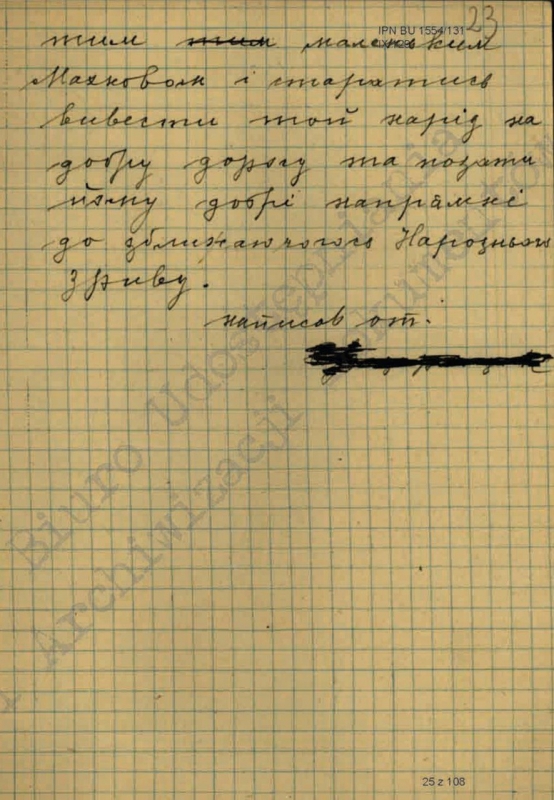 IPN BU 1554/131
23
тим тим маленьким
Махновом і старатись
вивести той нарід на
добру дорогу та подати
йому добрі напрамні
до зближаючогось Народнього
Зриву.
написов от.
Biuro Udostępniania
i Archiwizacji Dokumentów
25 z 108